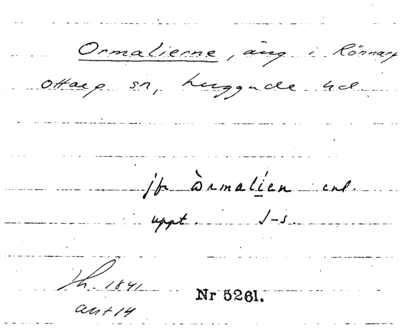 Ormalierne, äng i Rönnarp
Ottarp sn, Luggude hd
jfr Òrmalíen enl.
uppt. J-s.
Lh. 1841
akt 14
Nr 5261.